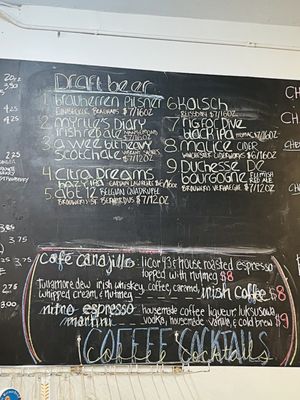 Draft beer
1 brauherren Pilsner
Einbecker Brauhaus $7/16oz
2 myrtle's Diary
irish red ale $7/16oz
3 a wee bit heavy
scotch ale $7/12oz
4 Citra Dreams
hazy ipa Captain Lawrence $8/16oz
5 abt 12 Belgian Quadruple
Brouwerij St. Bernardus $7/12oz
6 Kölsch
Reissdorf $7/16oz
7 nisfor Dive
black ipa $7/16oz
8 malice cider
ciderworks $6/16oz
9 Duchesse De
bourgogne Flemish Red Ale
Brouwerij Verhaeghe $7/12oz
café candjillo: licor 43 & house roasted espresso
topped with nutmeg $8
Tullamore dew irish whiskey, coffee, caramel,
whipped cream, & nutmeg irish coffee $8
nitro espresso martini
housemade coffee liqueur, luksusowa
vodka, housemade vanilla, & cold brew $9
COFFEE Cocktails
20oz
3.50
4.25
4.25
2.25
3.85
3.75
3.25
3.00